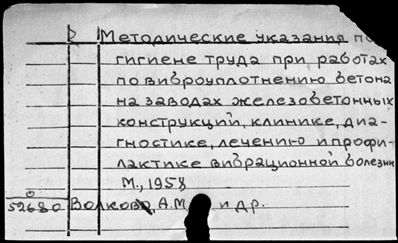 Методические указания по
гигиене труда при работах
по виброуплотнению бетона
на заводах железобетонных
конструкций, клинике, диа-
гностике, лечению и профи-
лактике вибрационной болезни
М., 1958
52680 Волкова, А.М. и др.